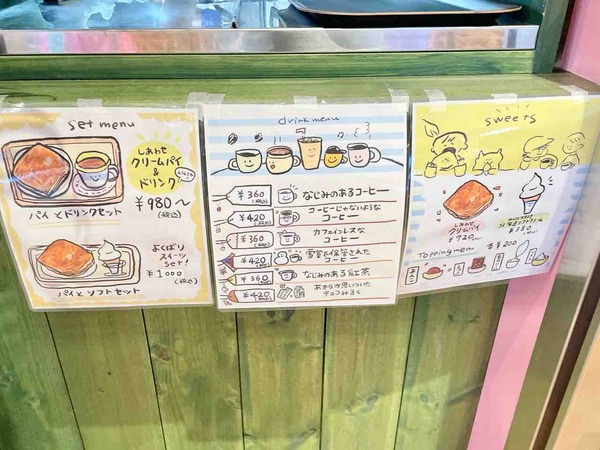 set menu
しあわせ
クリームパイ
&
ドリンク
¥980〜
(税込)
パイとドリンクセット
よくばり
スイーツ
Set!
¥1000
(税込)
パイとソフトセット
drink menu
¥360 なじみのあるコーヒー
¥420 コーヒーじゃないような
コーヒー
¥360 カフェインレスな
コーヒー
¥420
コーヒー
¥360 なじみのある紅茶
¥420
チョコみるく
sweets
しあわせ
クリームパイ
¥720
¥380
Topping menu
各¥200